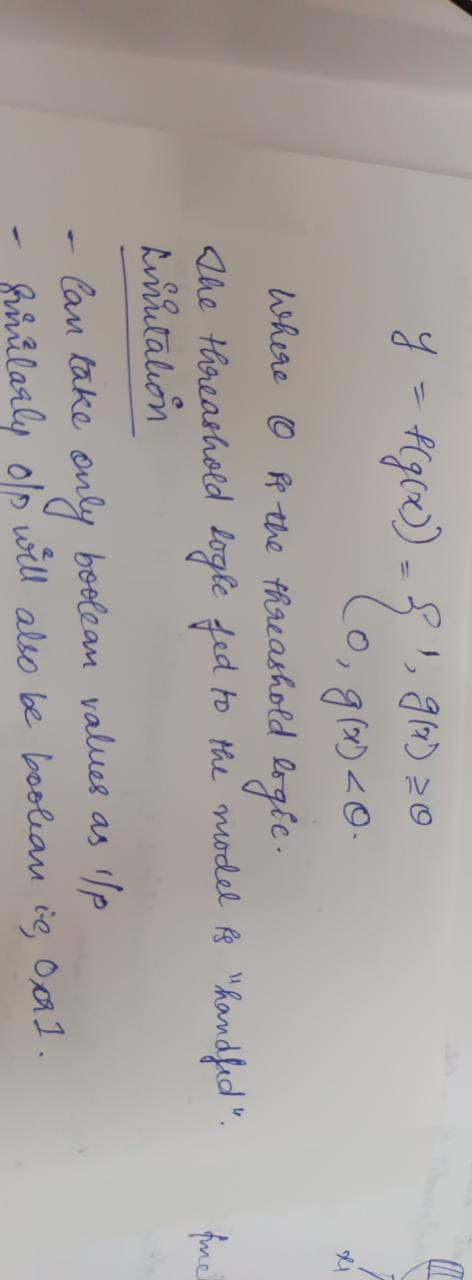 y = f(g(x)) = { 1, g(x) ≥ θ
0, g(x) < θ.
Where θ is the threashold logic.
The threashold logic fed to the model is "handfed".
Limitation
- Can take only boolean values as i/p
- Similarly o/p will also be boolean ie, 0 or 1.
x1
func